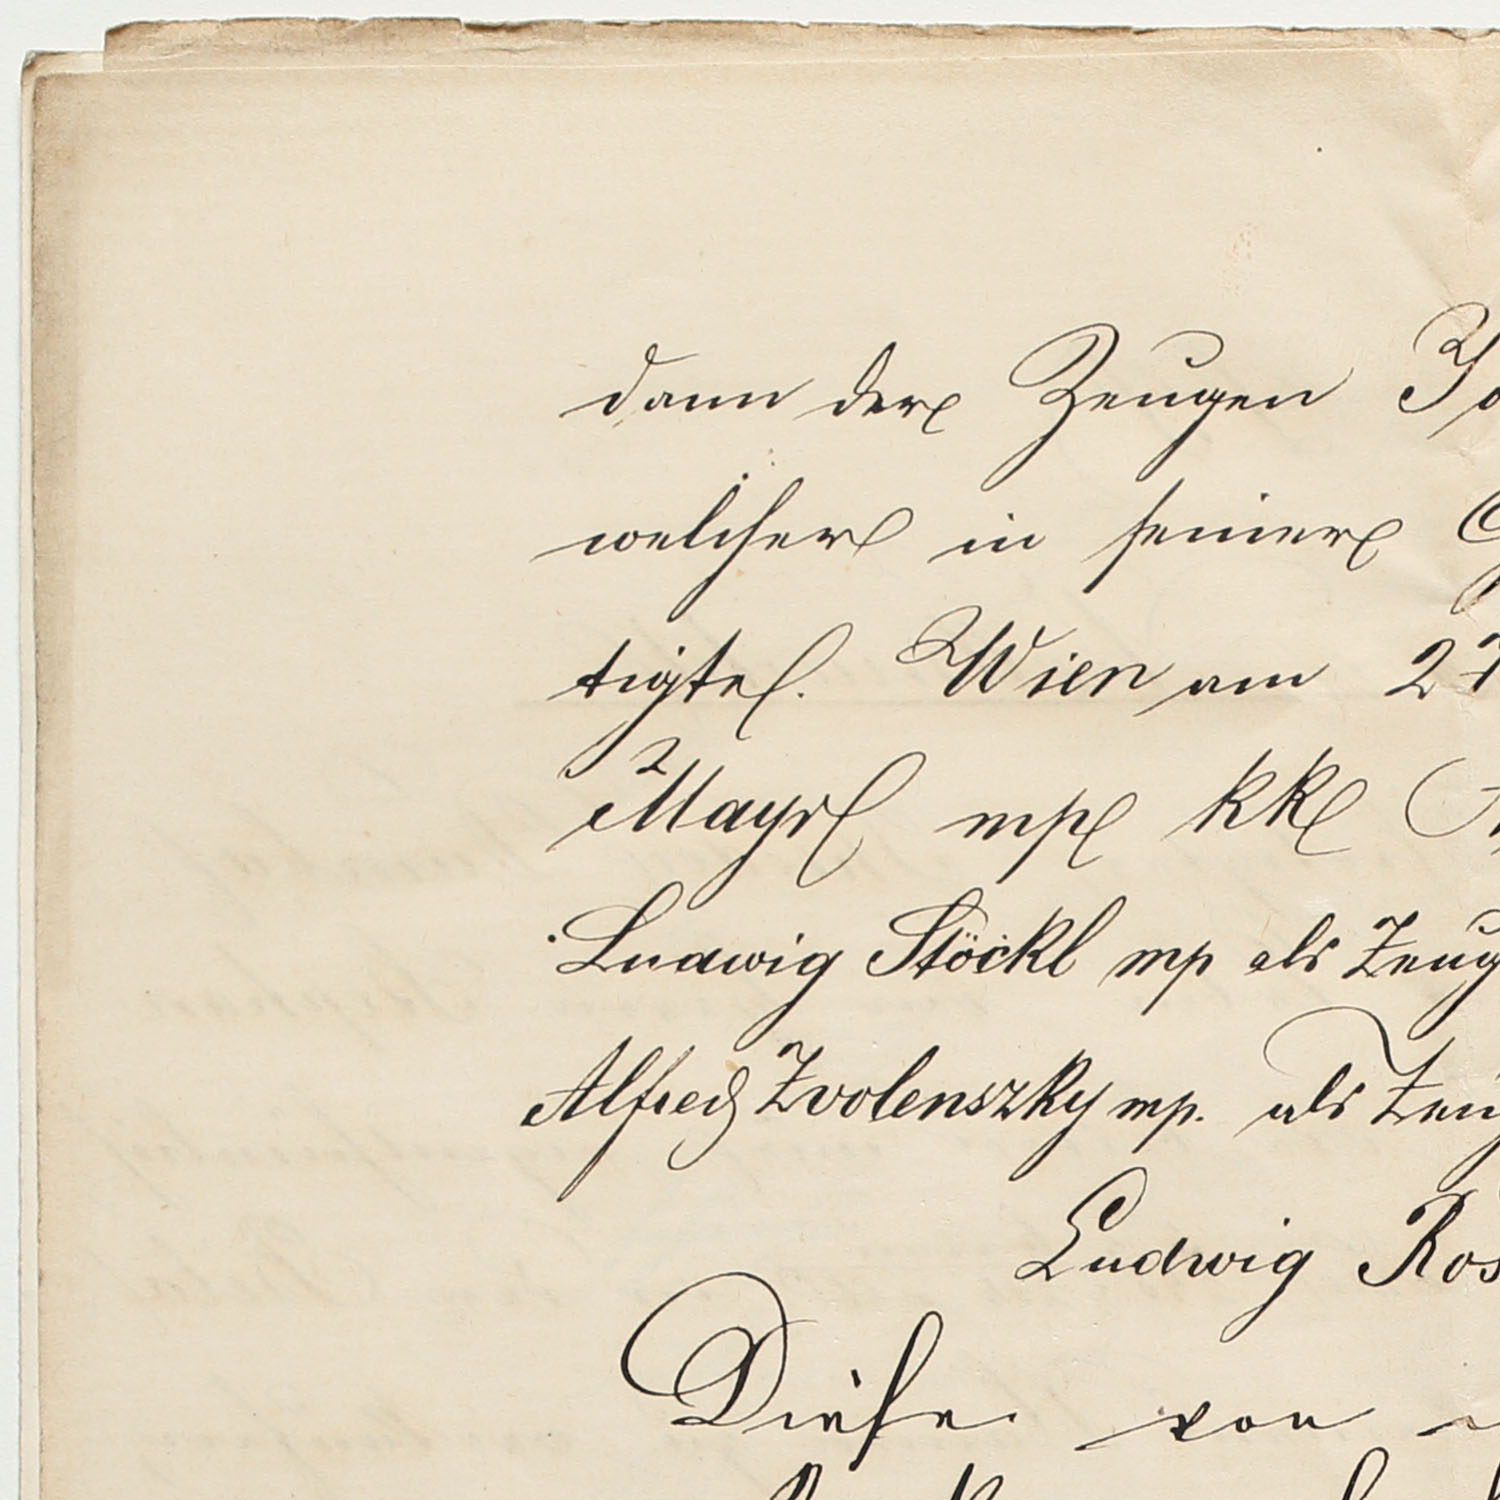 dann der Zeugen
welcher in seiner
tigte. Wien am 27
Mayr mp kk
Ludwig Stöckl mp als Zeug
Alfred Zvolenszky mp. als Zeug
Ludwig Ros
Diese von